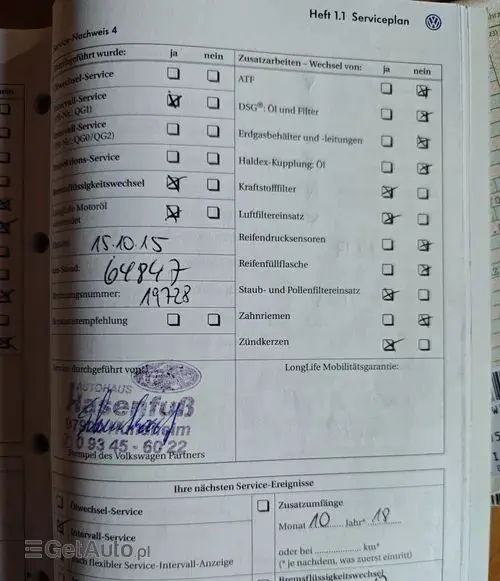 Heft 1.1 Serviceplan
Service-Nachweis 4
wurde: ja nein
Ölwechsel-Service
Intervall-Service
QG1)
Service
QG0/QG2)
Inspektions-Service
Bremsflüssigkeitswechsel
LongLife Motoröl
Datum: 15.10.15
km-Stand: 64847
Rechnungsnummer: 19728
Zusatzarbeiten – Wechsel von: ja nein
ATF
DSG®: Öl und Filter
Erdgasbehälter und -leitungen
Haldex-Kupplung: Öl
Kraftstofffilter
Luftfiltereinsatz
Reifendrucksensoren
Reifenfüllflasche
Staub- und Pollenfiltereinsatz
Zahnriemen
Zündkerzen
Service durchgeführt von:
AUTOHAUS
Hasenfuß
0 93 45 - 60 22
Stempel des Volkswagen Partners
LongLife Mobilitätsgarantie:
Ihre nächsten Service-Ereignisse
Ölwechsel-Service
Intervall-Service
nach flexibler Service-Intervall-Anzeige
Zusatzumfänge
Monat 10 Jahr* 18
oder bei km*
(* je nachdem, was zuerst eintritt)
Bremsflüssigkeitswechsel
GetAuto.pl